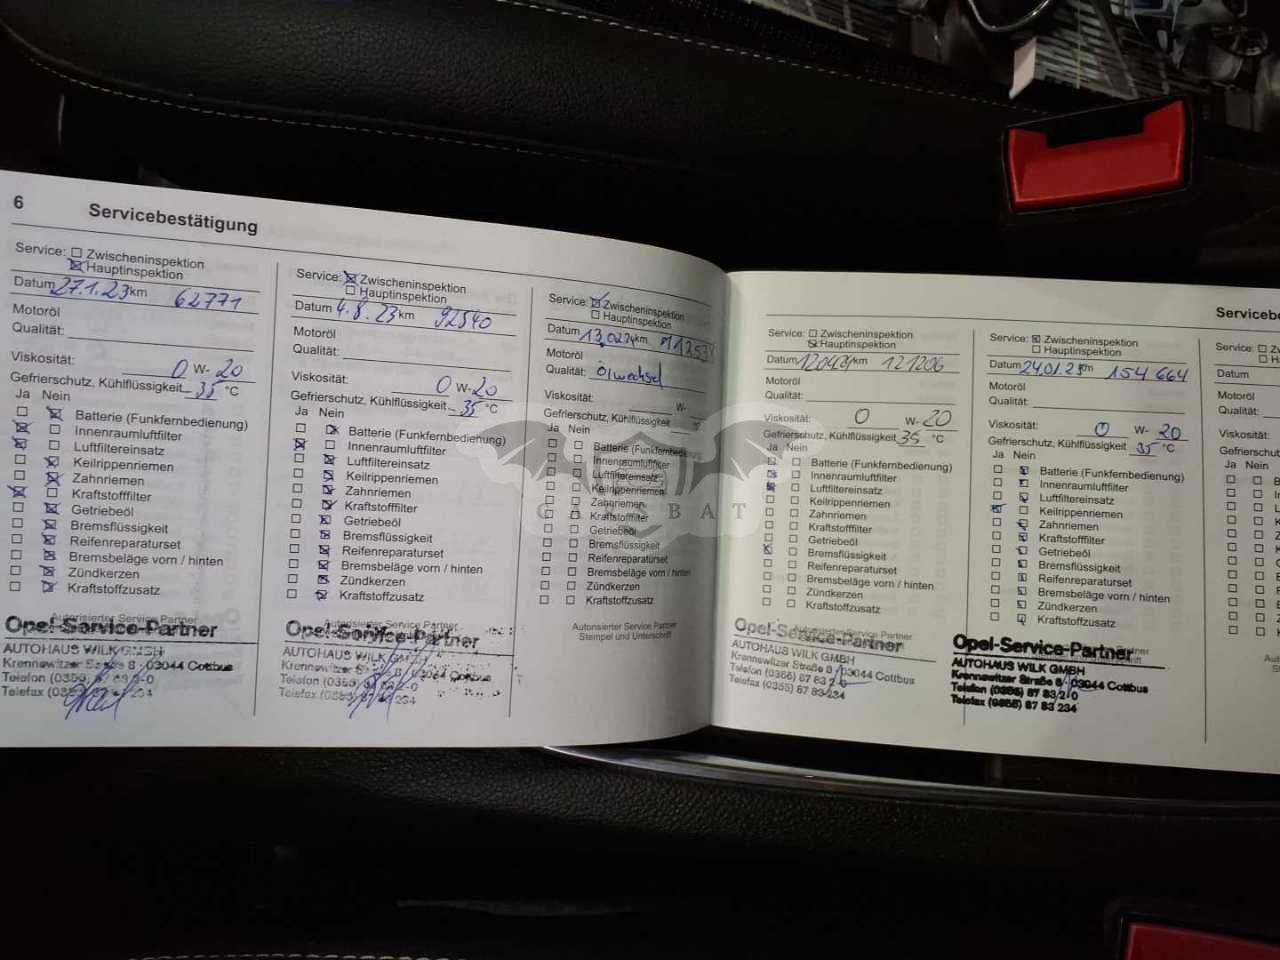 6 Servicebestätigung
Service: Zwischeninspektion
Hauptinspektion
Datum 27.1.23 km 62771
Motoröl
Qualität:
Viskosität: 0 W-20
Gefrierschutz, Kühlflüssigkeit 35 °C
Ja Nein
Batterie (Funkfernbedienung)
Innenraumluftfilter
Luftfiltereinsatz
Keilrippenriemen
Zahnriemen
Kraftstofffilter
Getriebeöl
Bremsflüssigkeit
Reifenreparaturset
Bremsbeläge vorn / hinten
Zündkerzen
Kraftstoffzusatz
Autorisierter Service Partner
Opel-Service-Partner
AUTOHAUS WILK GMBH
Krennewitzer Straße 8 / 03044 Cottbus
Telefon (0355) 87 83 2-0
Telefax (0355) 87 83 234
Service: Zwischeninspektion
Hauptinspektion
Datum 4.8.23 km 92540
Motoröl
Qualität:
Viskosität: 0 W-20
Gefrierschutz, Kühlflüssigkeit 35 °C
Ja Nein
Batterie (Funkfernbedienung)
Innenraumluftfilter
Luftfiltereinsatz
Keilrippenriemen
Zahnriemen
Kraftstofffilter
Getriebeöl
Bremsflüssigkeit
Reifenreparaturset
Bremsbeläge vorn / hinten
Zündkerzen
Kraftstoffzusatz
Autorisierter Service Partner
Opel-Service-Partner
AUTOHAUS WILK GMBH
Krennewitzer Straße 8 / 03044 Cottbus
Telefon (0355) 87 83 2-0
Telefax (0355) 87 83 234
Service: Zwischeninspektion
Hauptinspektion
Datum 13.02.24 km
Motoröl
Qualität: Ölwechsel
Viskosität: W-
Gefrierschutz, Kühlflüssigkeit °C
Ja Nein
Batterie (Funkfernbedienung)
Innenraumluftfilter
Luftfiltereinsatz
Keilrippenriemen
Zahnriemen
Kraftstofffilter
Getriebeöl
Bremsflüssigkeit
Reifenreparaturset
Bremsbeläge vorn / hinten
Zündkerzen
Kraftstoffzusatz
Autorisierter Service Partner
Stempel und Unterschrift
CARSBAT
Servicebe
Service: Zwischeninspektion
Hauptinspektion
Datum 12.04.24 km 121206
Motoröl
Qualität:
Viskosität: 0 W-20
Gefrierschutz, Kühlflüssigkeit 35 °C
Ja Nein
Batterie (Funkfernbedienung)
Innenraumluftfilter
Luftfiltereinsatz
Keilrippenriemen
Zahnriemen
Kraftstofffilter
Getriebeöl
Bremsflüssigkeit
Reifenreparaturset
Bremsbeläge vorn / hinten
Zündkerzen
Kraftstoffzusatz
Autorisierter Service Partner
Opel-Service-Partner
AUTOHAUS WILK GMBH
Krennewitzer Straße 8 / 03044 Cottbus
Telefon (0355) 87 83 2-0
Telefax (0355) 87 83 234
Service: Zwischeninspektion
Hauptinspektion
Datum 24.01.25 km 154 664
Motoröl
Qualität:
Viskosität: 0 W-20
Gefrierschutz, Kühlflüssigkeit 35 °C
Ja Nein
Batterie (Funkfernbedienung)
Innenraumluftfilter
Luftfiltereinsatz
Keilrippenriemen
Zahnriemen
Kraftstofffilter
Getriebeöl
Bremsflüssigkeit
Reifenreparaturset
Bremsbeläge vorn / hinten
Zündkerzen
Kraftstoffzusatz
Opel-Service-Partner
AUTOHAUS WILK GMBH
Krennewitzer Straße 8 / 03044 Cottbus
Telefon (0355) 87 83 2-0
Telefax (0355) 87 83 234
Service: Z
H
Datum
Motoröl
Qualität:
Viskosität:
Gefrierschutz
Ja Nein